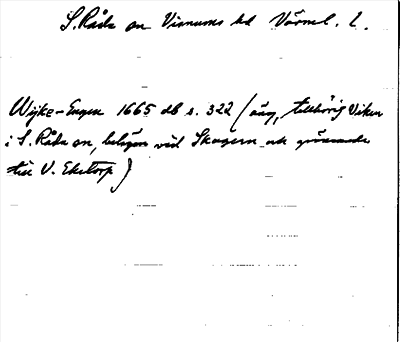 S. Råda sn Visnums hd Värml. l.
Wijke-Engen 1665 db s. 322 (äng, tillhörig Viken
i S. Råda sn, belägen vid Skagern och gränsande
till V. Ekstorp)